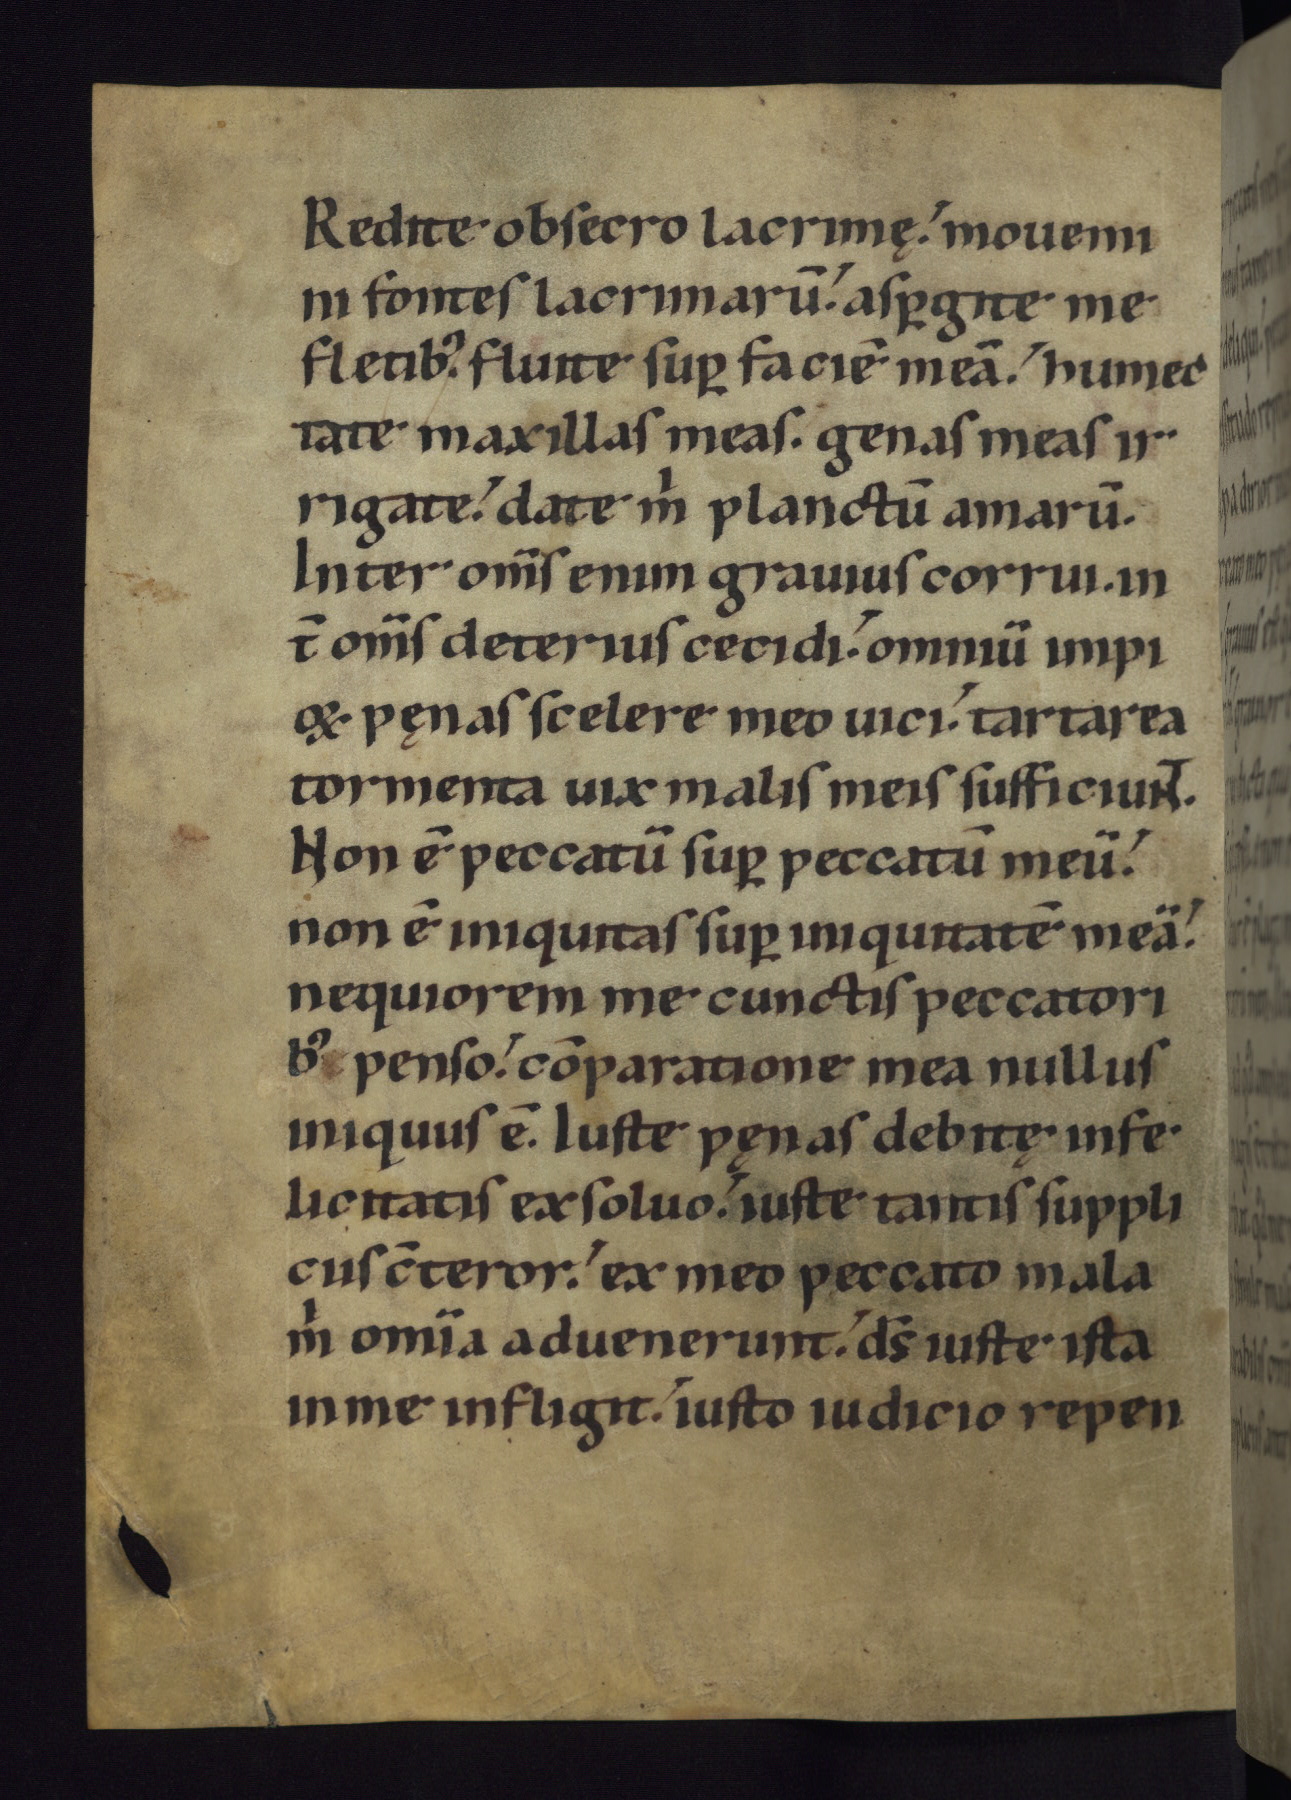 Redite obsecro lacrimę. mouemi
ni fontes lacrimarū. asꝑgite me
fletibꝰ. fluite suꝑ faciē meā. humec
tate maxillas meas. genas meas ir
rigate. date m̍ planctū amarū.
Inter om̄s enim grauius corrui. in
t̄ om̄s deterius cecidi. omniū impi
oꝝ pęnas scelere meo uici. tartarea
tormenta uix malis meis sufficiunt.
Non ē peccatū suꝑ peccatū meū.
non ē iniquitas suꝑ iniquitatē meā.
nequiorem me cunctis peccatori
bꝰ penso. cōparatione mea nullus
iniquus ē. Iuste pęnas debitę infe
licitatis exsoluo. iuste tantis suppli
ciis c̄teror. ex meo peccato mala
m̍ om̄ia aduenerunt. ds̄ iuste ista
in me infligit. iusto iudicio repen